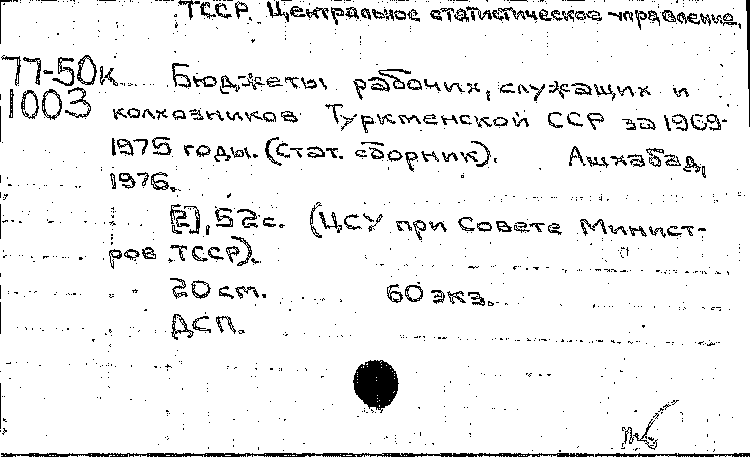 ТССР. Центральное статистическое управление.
77-50к Бюджеты рабочих, служащих и
1003 колхозников Туркменской ССР за 1969-
1975 годы. (Стат. сборник). Ашхабад,
1976.
[2], 52 с. (ЦСУ при Совете Минист-
ров ТССР).
20 см. 60 экз.
ДСП.